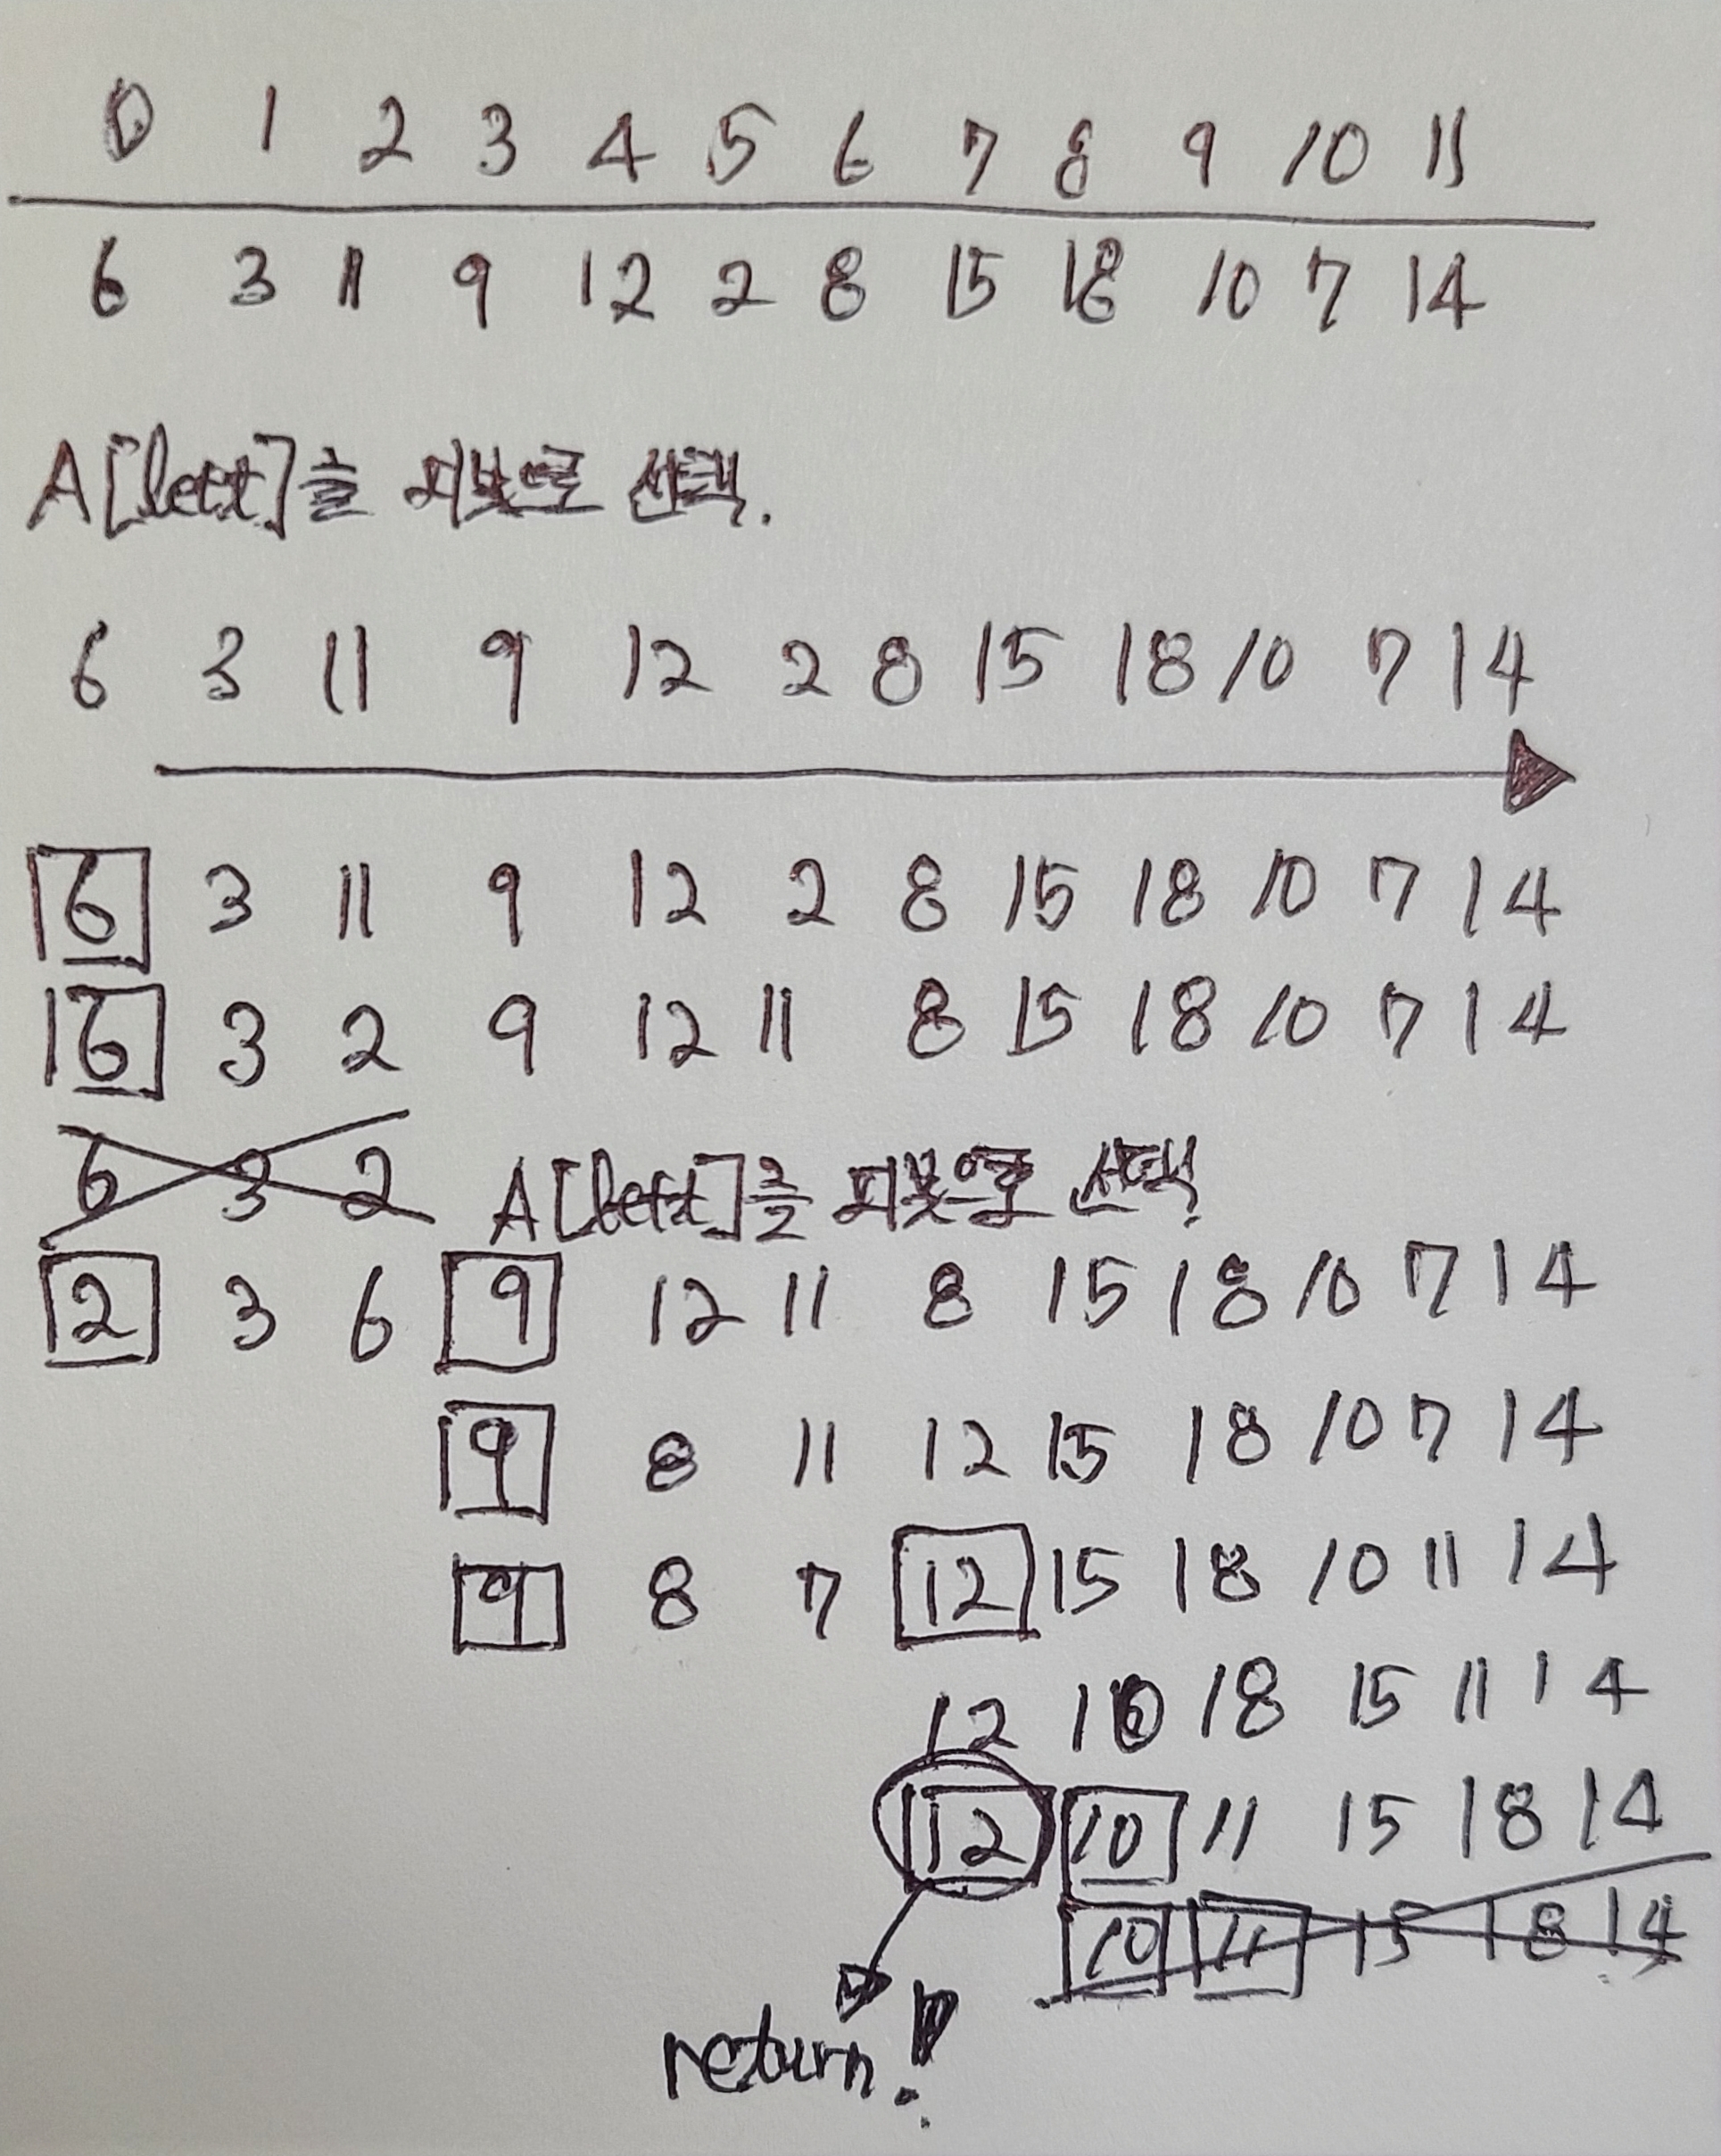 0 1 2 3 4 5 6 7 8 9 10 11
6 3 11 9 12 2 8 15 18 10 7 14
A[left]를 피봇으로 선택.
6 3 11 9 12 2 8 15 18 10 7 14
6 3 11 9 12 2 8 15 18 10 7 14
6 3 2 9 12 11 8 15 18 10 7 14
6 3 2 A[left]를 피봇으로 선택.
2 3 6 9 12 11 8 15 18 10 7 14
9 8 11 12 15 18 10 7 14
9 8 7 12 15 18 10 11 14
12 10 18 15 11 14
12 10 11 15 18 14
10 11 15 18 14
return!